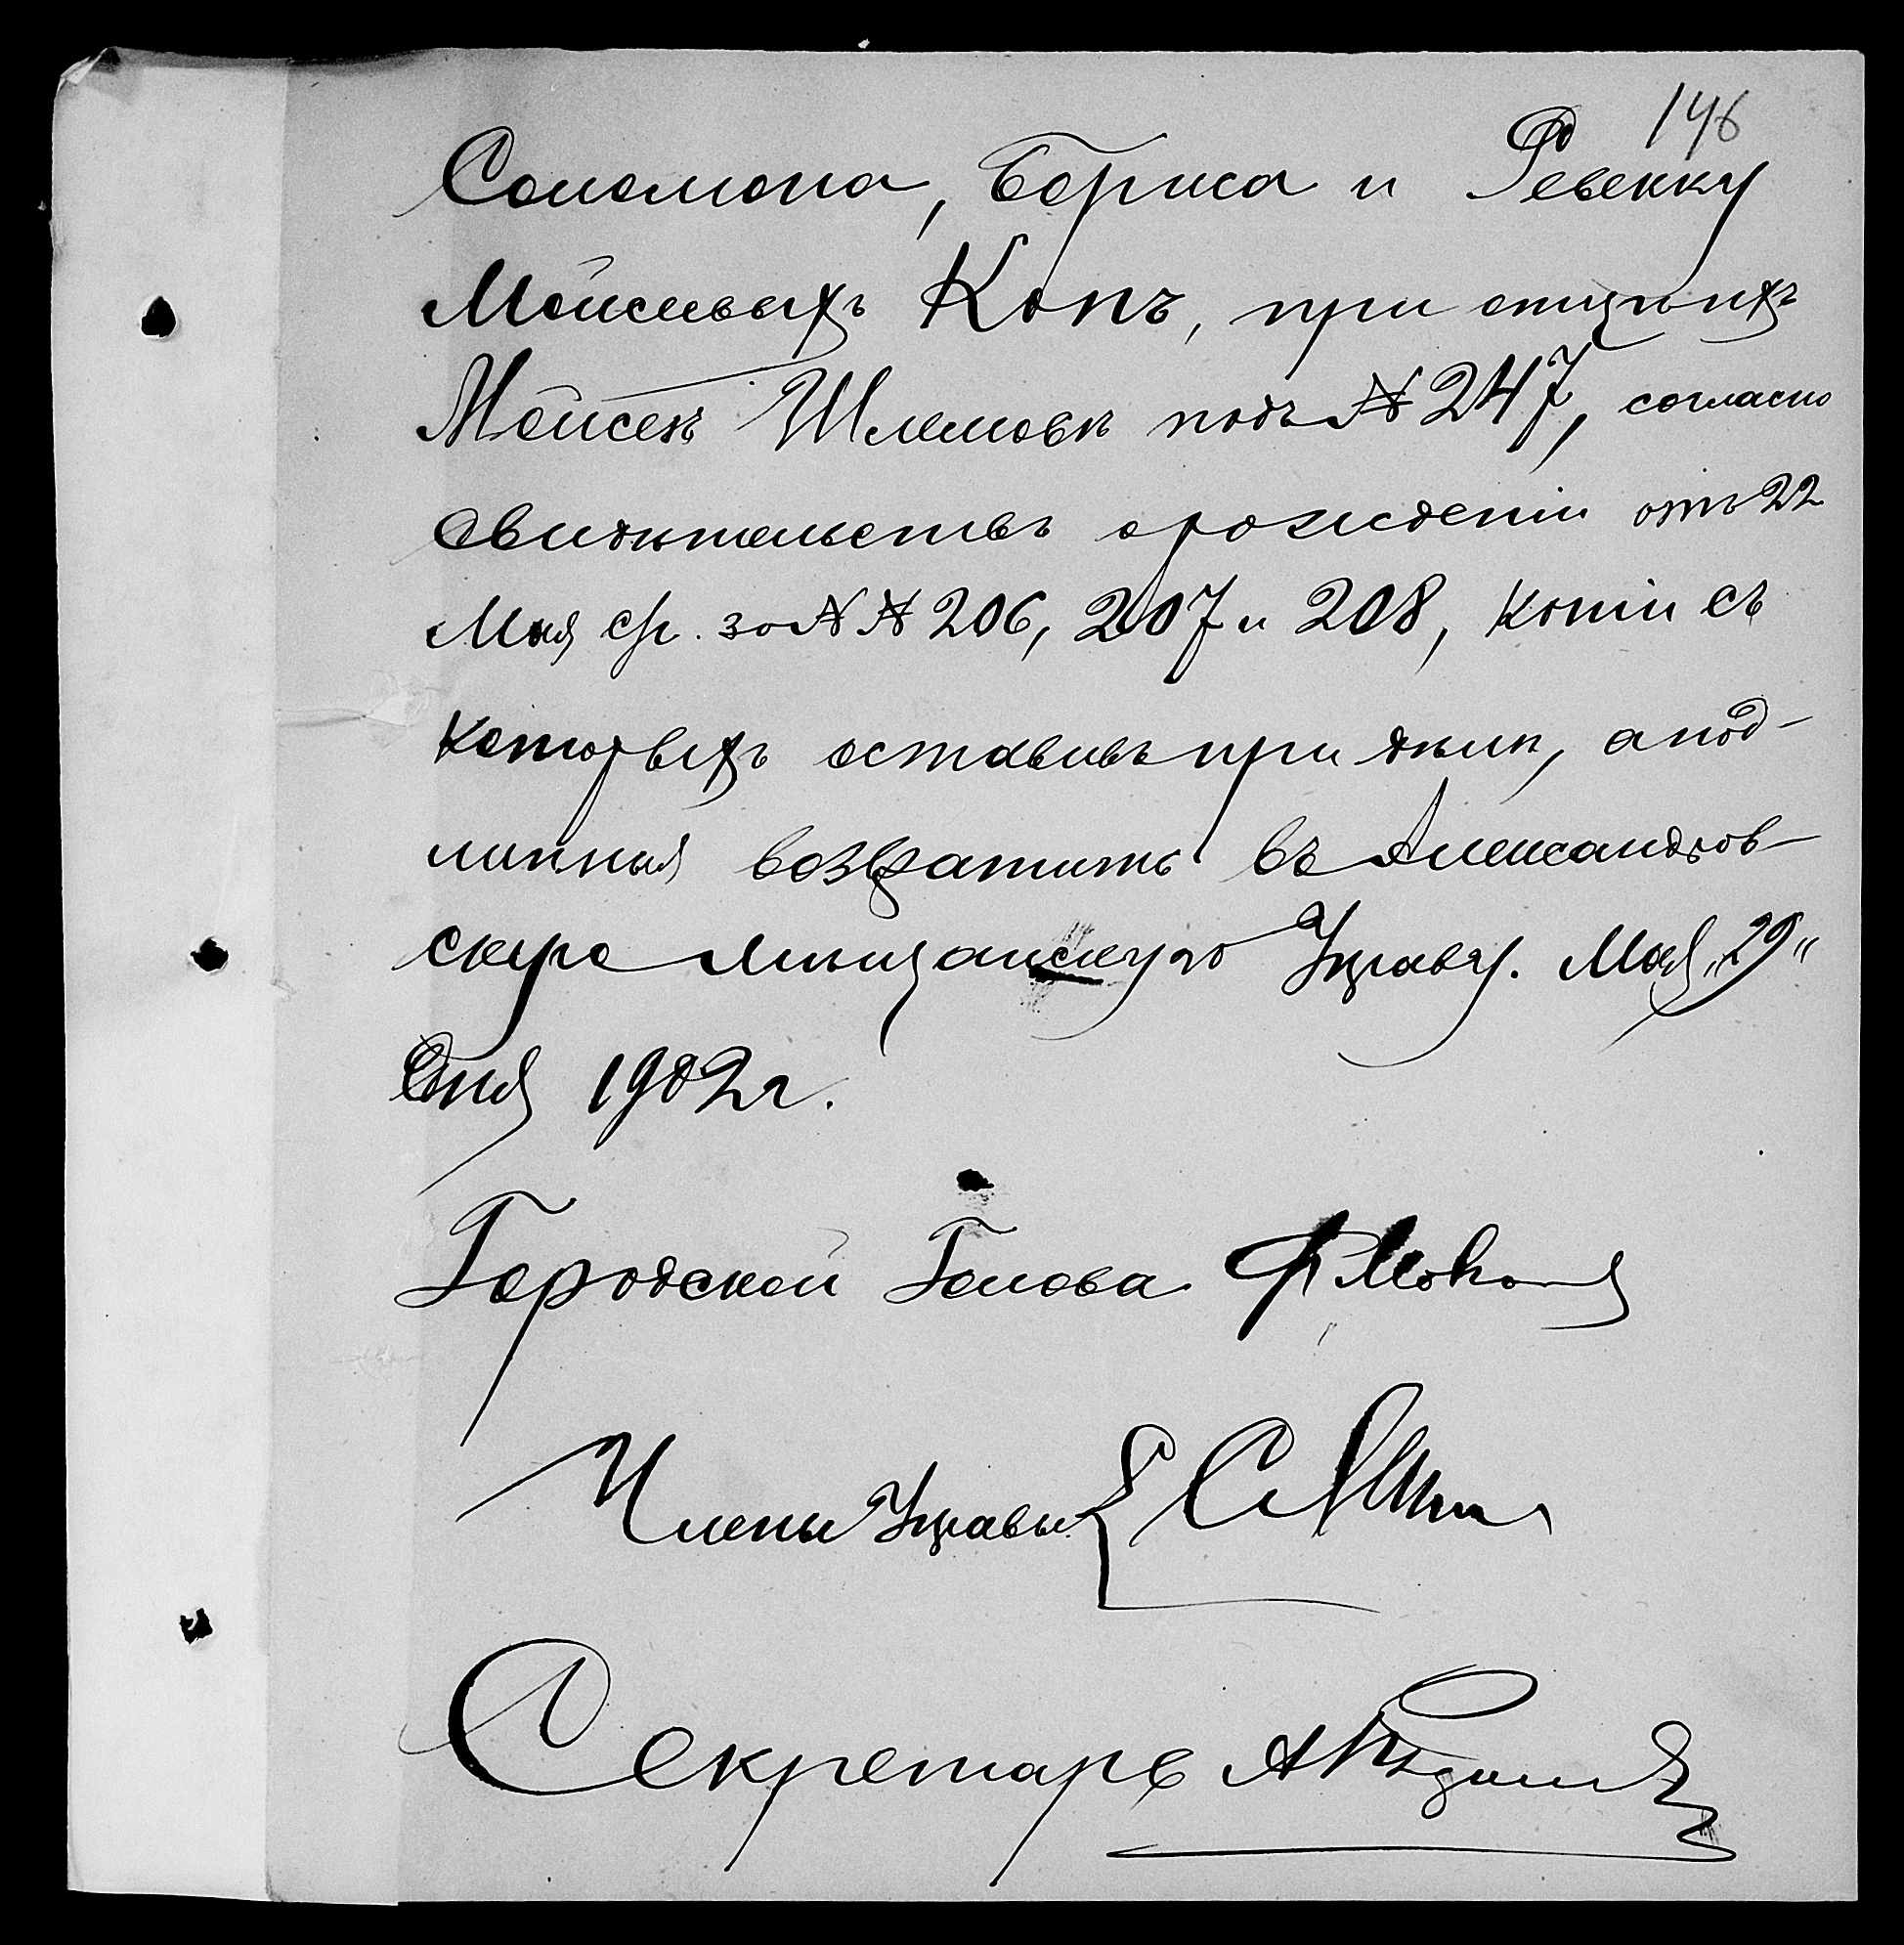 146
Соломона, Бориса и Ревекку
Мойсеевыхъ Копъ, при отцѣ ихъ
Мойсеѣ Шлемовѣ подъ № 247, согласно
свидѣтельствъ о рожденіи отъ 22
Мая с/г. за №№ 206, 207 и 208, копіи съ
которыхъ оставивъ при дѣлѣ, а под-
линныя возвратить въ Александров-
скую мѣщанскую Управу. Мая „29"
дня 1902 г.
Городской Голова
Члены Управы
Секретарь